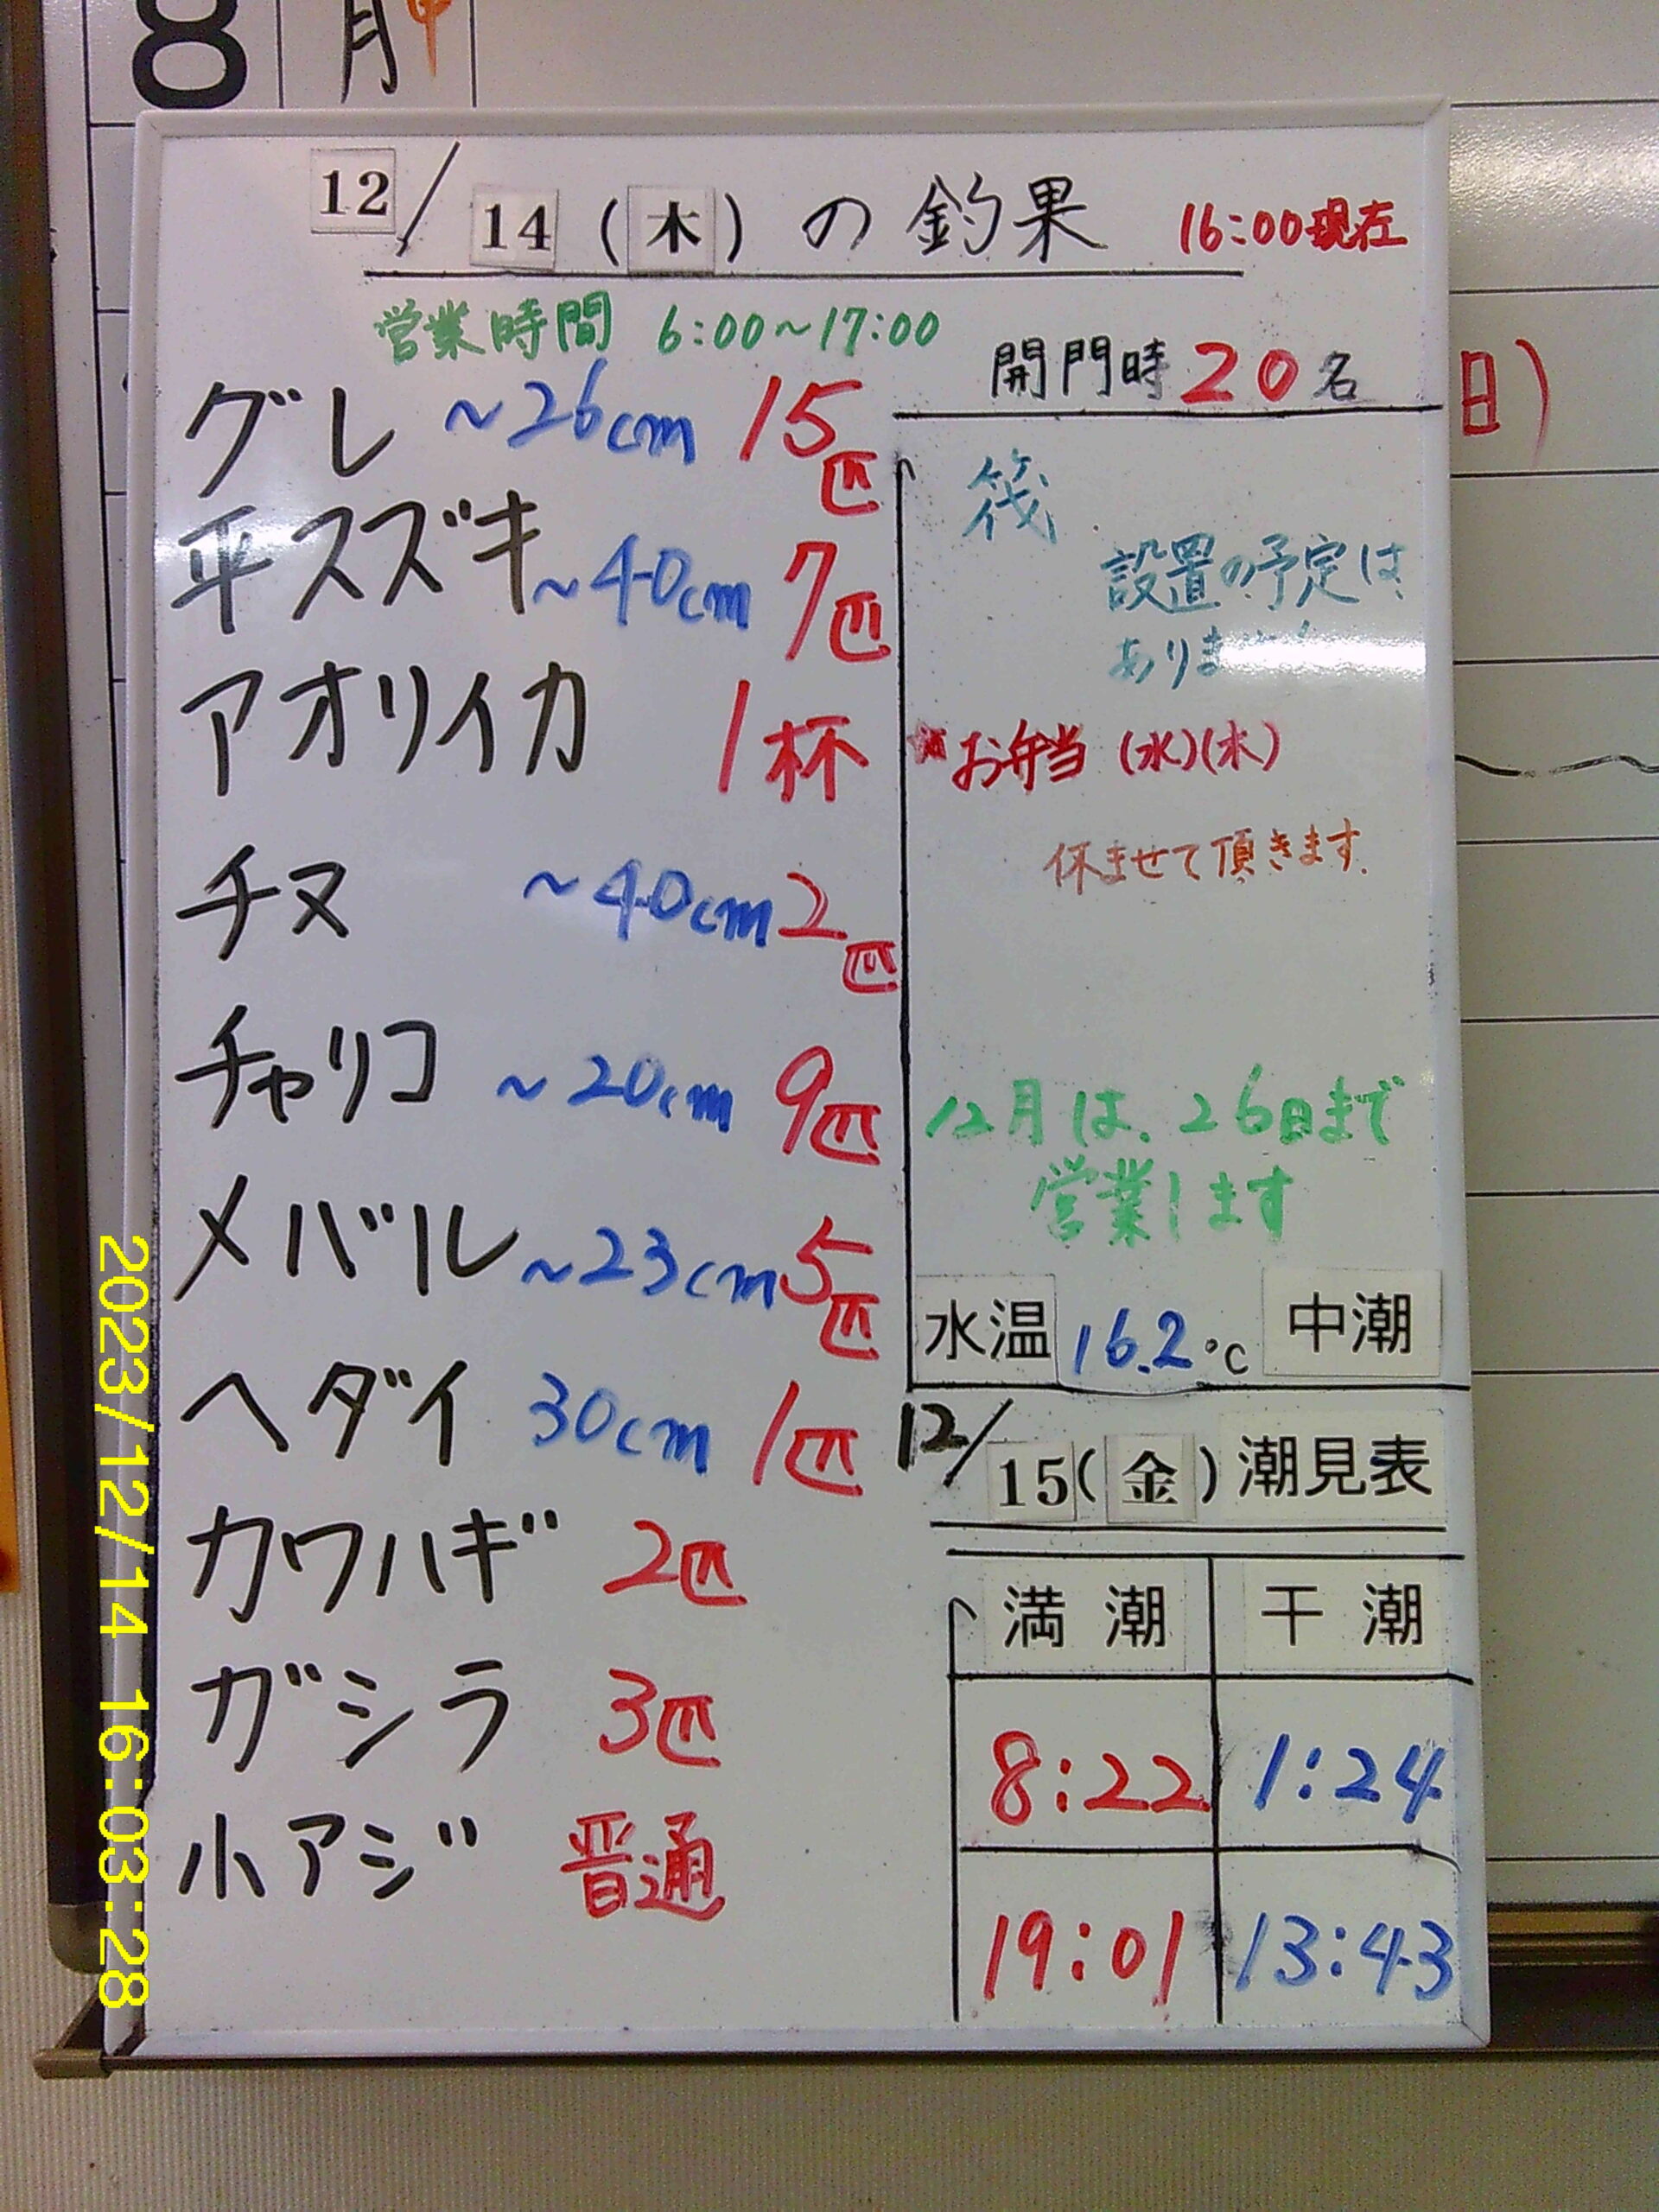 8 月
12/14(木)の釣果 16:00現在
営業時間 6:00~17:00
開門時20名
グレ ~26cm 15匹
平スズキ ~40cm 7匹
アオリイカ 1杯
チヌ ~40cm 2匹
チャリコ ~20cm 9匹
メバル ~23cm 5匹
ヘダイ 30cm 1匹
カワハギ 2匹
ガシラ 3匹
小アジ 普通
筏
設置の予定は
ありま
お弁当 (水)(木)
休ませて頂きます.
12月は、26日まで
営業します
水温 16.2℃ 中潮
12/15(金)潮見表
満潮 干潮
8:22 1:24
19:01 13:43
日)
2023/12/14 16:03:28